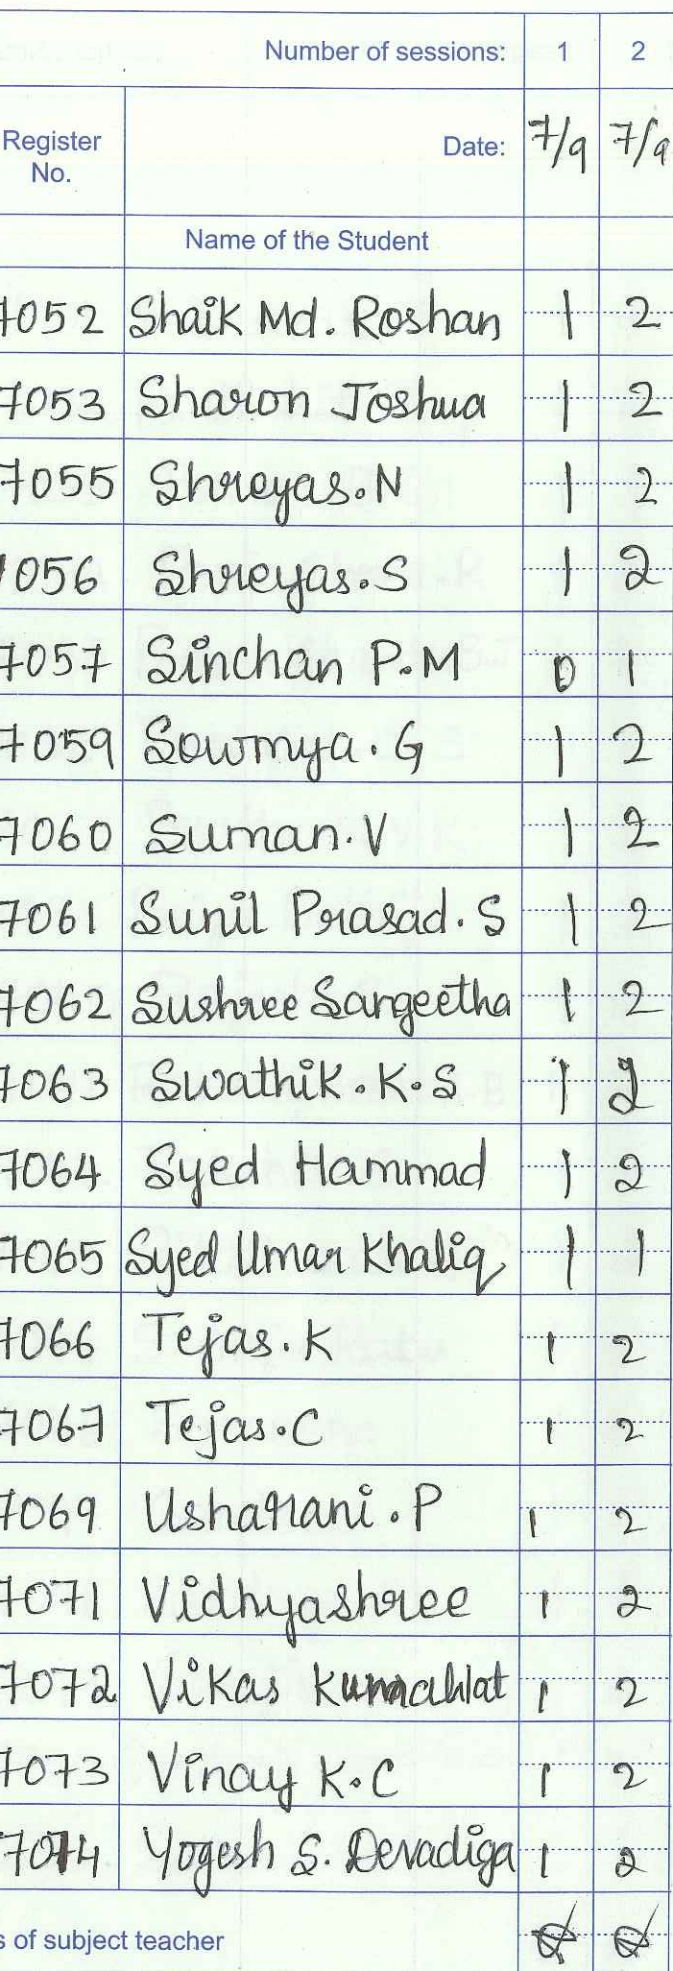 Number of sessions: 1 2
Register No. Date: 7/9 7/9
Name of the Student
7052 Shaik Md. Roshan 1 2
7053 Sharon Joshua 1 2
7055 Shreyas.N 1 2
7056 Shreyas.S 1 2
7057 Sinchan P.M 0 1
7059 Sowmya.G 1 2
7060 Suman.V 1 2
7061 Sunil Prasad.S 1 2
7062 Sushree Sangeetha 1 2
7063 Swathik.K.S 1 2
7064 Syed Hammad 1 2
7065 Syed Umar Khaliq 1 1
7066 Tejas.K 1 2
7067 Tejas.C 1 2
7069 Usharani.P 1 2
7071 Vidhyashree 1 2
7072 Vikas Kumawat 1 2
7073 Vinay K.C 1 2
7074 Yogesh S. Devadiga 1 2
s of subject teacher